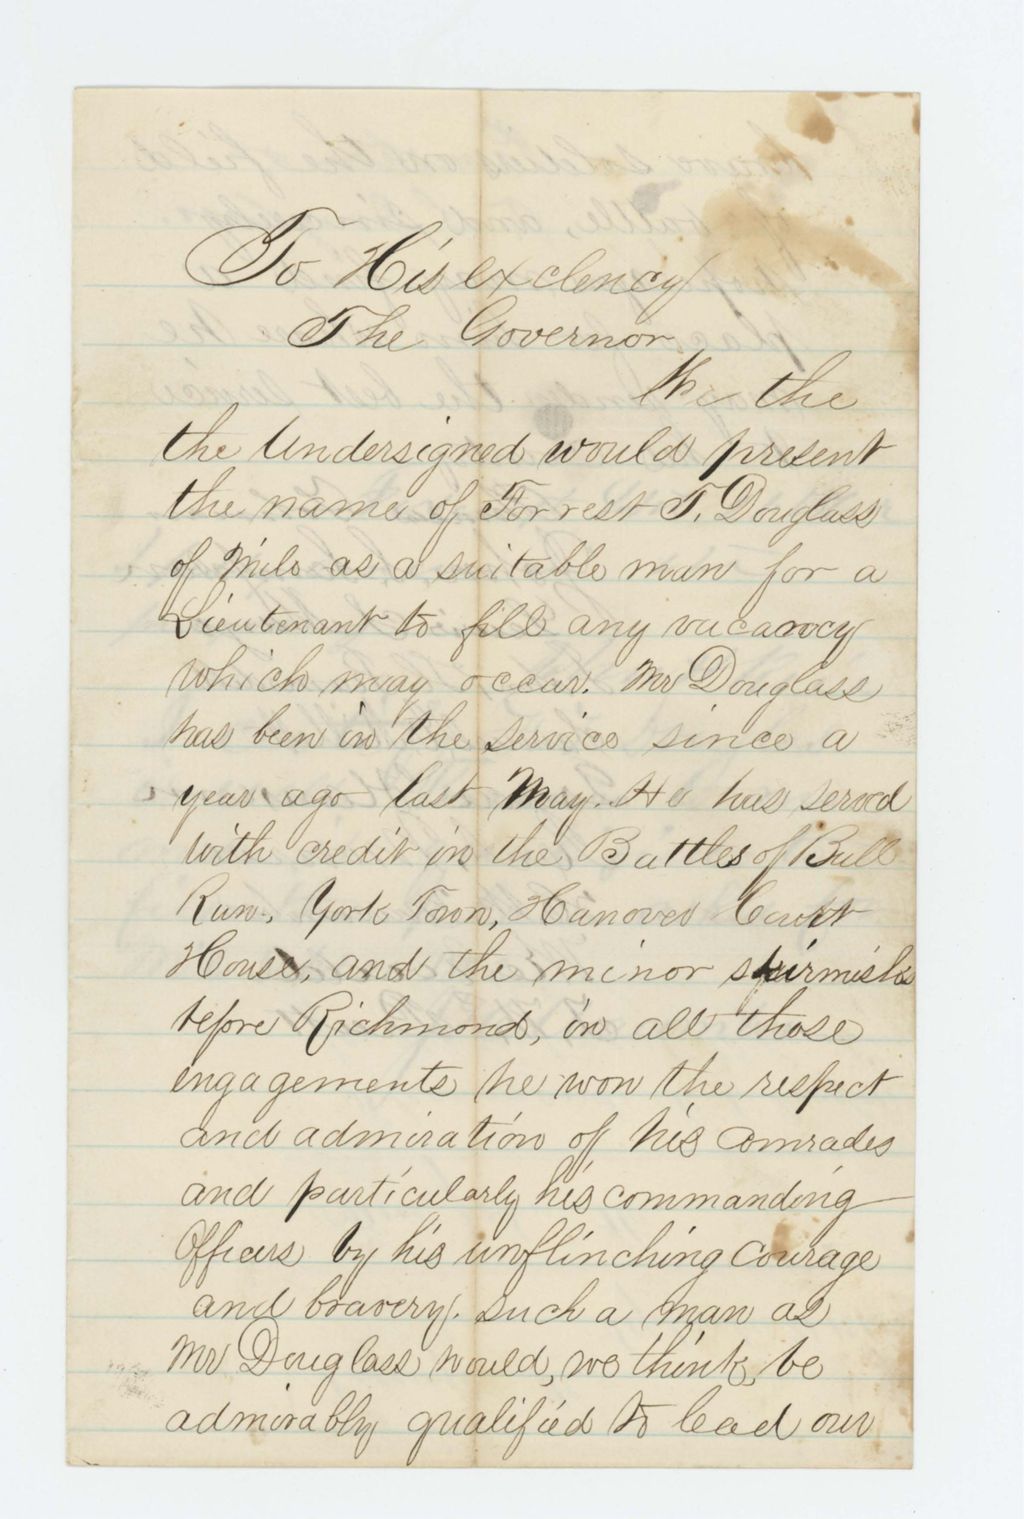 To His exclency
The Governor
We the
the Undersigned would present
the name of Forrest T. Douglass
of Milo as a suitable man for a
Lieutenant to fill any vacancy
which may occur. Mr Douglass
has been in the service since a
year ago last May. He has served
with credit in the Battles of Bull
Run, York Town, Hanover Court
House, and the minor skirmishs
before Richmond, in all those
engagements he won the respect
and admiration of his comrades
and particularly his commanding
Officers by his unflinching courage
and bravery. such a man as
Mr Douglass would, we think, be
admirably qualified to lead our